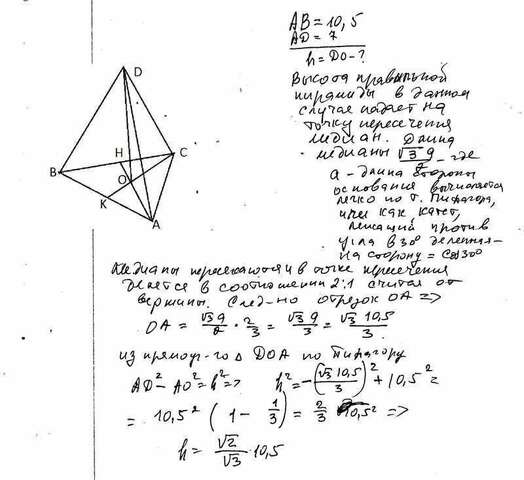 AB = 10,5
AD = 7
h = DO - ?
Высота правильной
пирамиды в данном
случае падает на
точку пересечения
медиан. Длина
медианы √3 a/2, где
a - длина стороны
основания вычисляется
легко по т. Пифагора,
или как катет,
лежащий против
угла в 30° деленная
на сторону = Cos30°
D
H
C
B
O
K
A
Медианы пересекаются и в точке пересечения
делятся в соотношении 2:1 считая от
вершины. След-но отрезок OA =>
OA = √3 a/2 · 2/3 = √3 a/3 = √3 10,5/3
из прямоуг-го Δ DOA по Пифагору
AD² - AO² = h² => h² = -(√3 10,5/3)² + 10,5² =
= 10,5² (1 - 1/3) = 2/3 10,5² =>
h = √2/√3 · 10,5